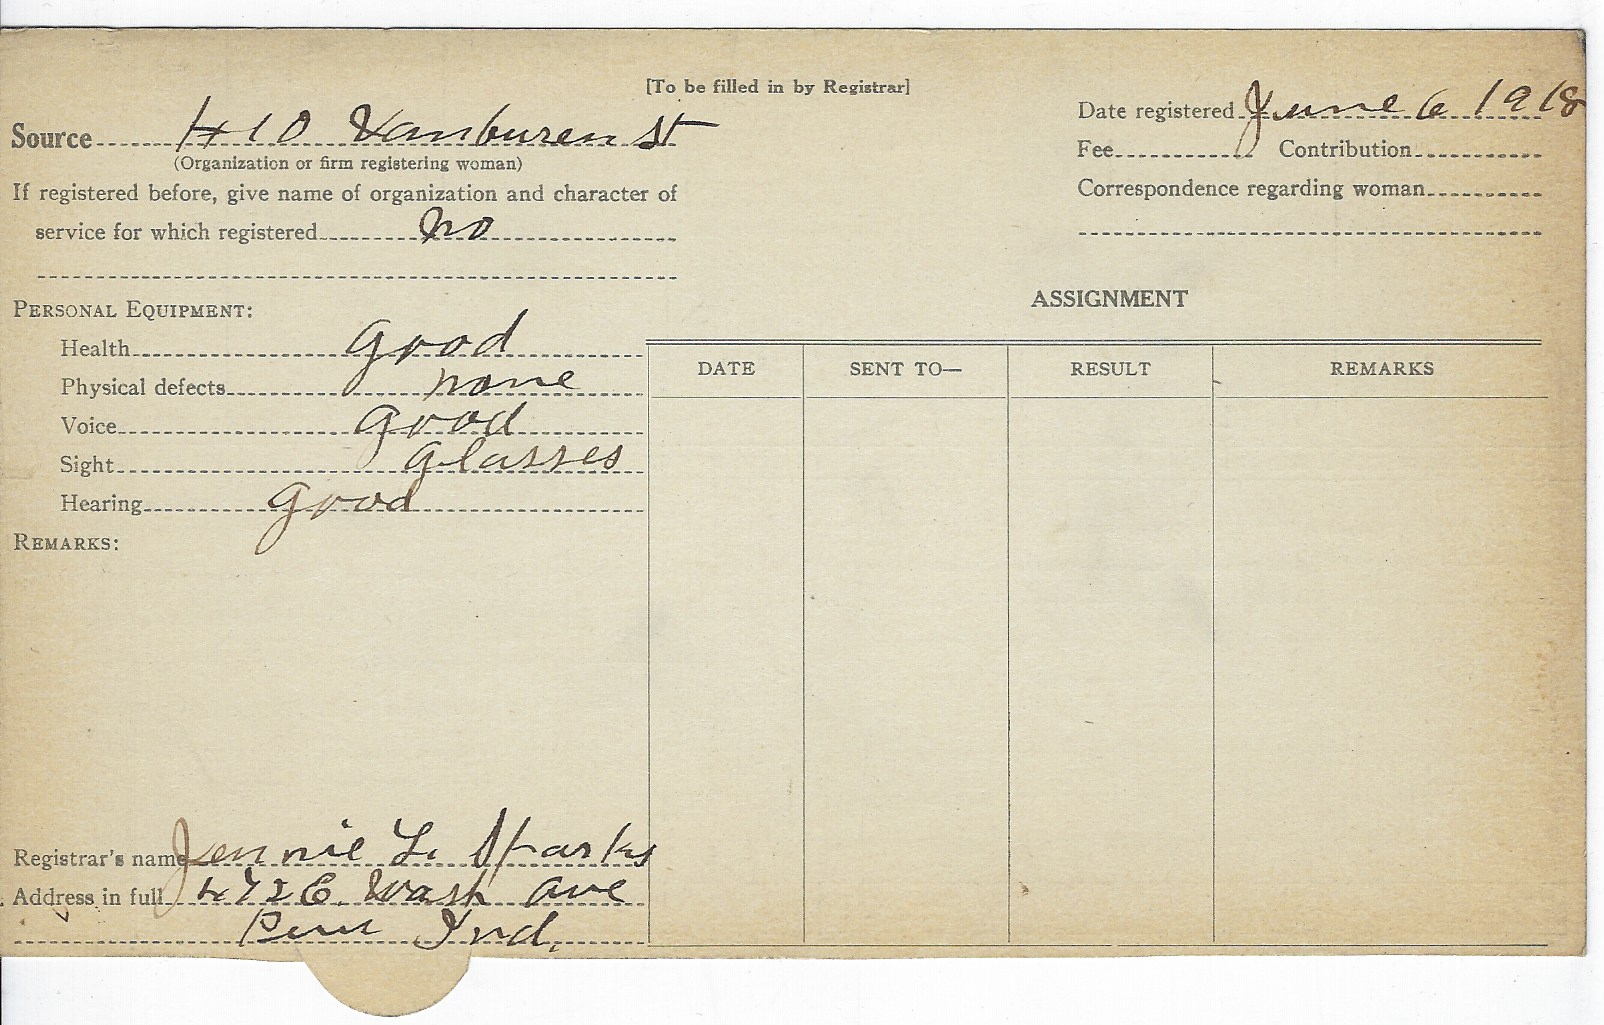 [To be filled in by Registrar]
Source 410 Vanburen St
(Organization or firm registering woman)
If registered before, give name of organization and character of
service for which registered no
Date registered June 6 1918
Fee Contribution
Correspondence regarding woman
PERSONAL EQUIPMENT:
Health good
Physical defects none
Voice good
Sight glasses
Hearing good
REMARKS:
ASSIGNMENT
DATE SENT TO— RESULT REMARKS
Registrar's name Jennie L. Sparks
Address in full 472 E. Wash ave
Peru Ind.